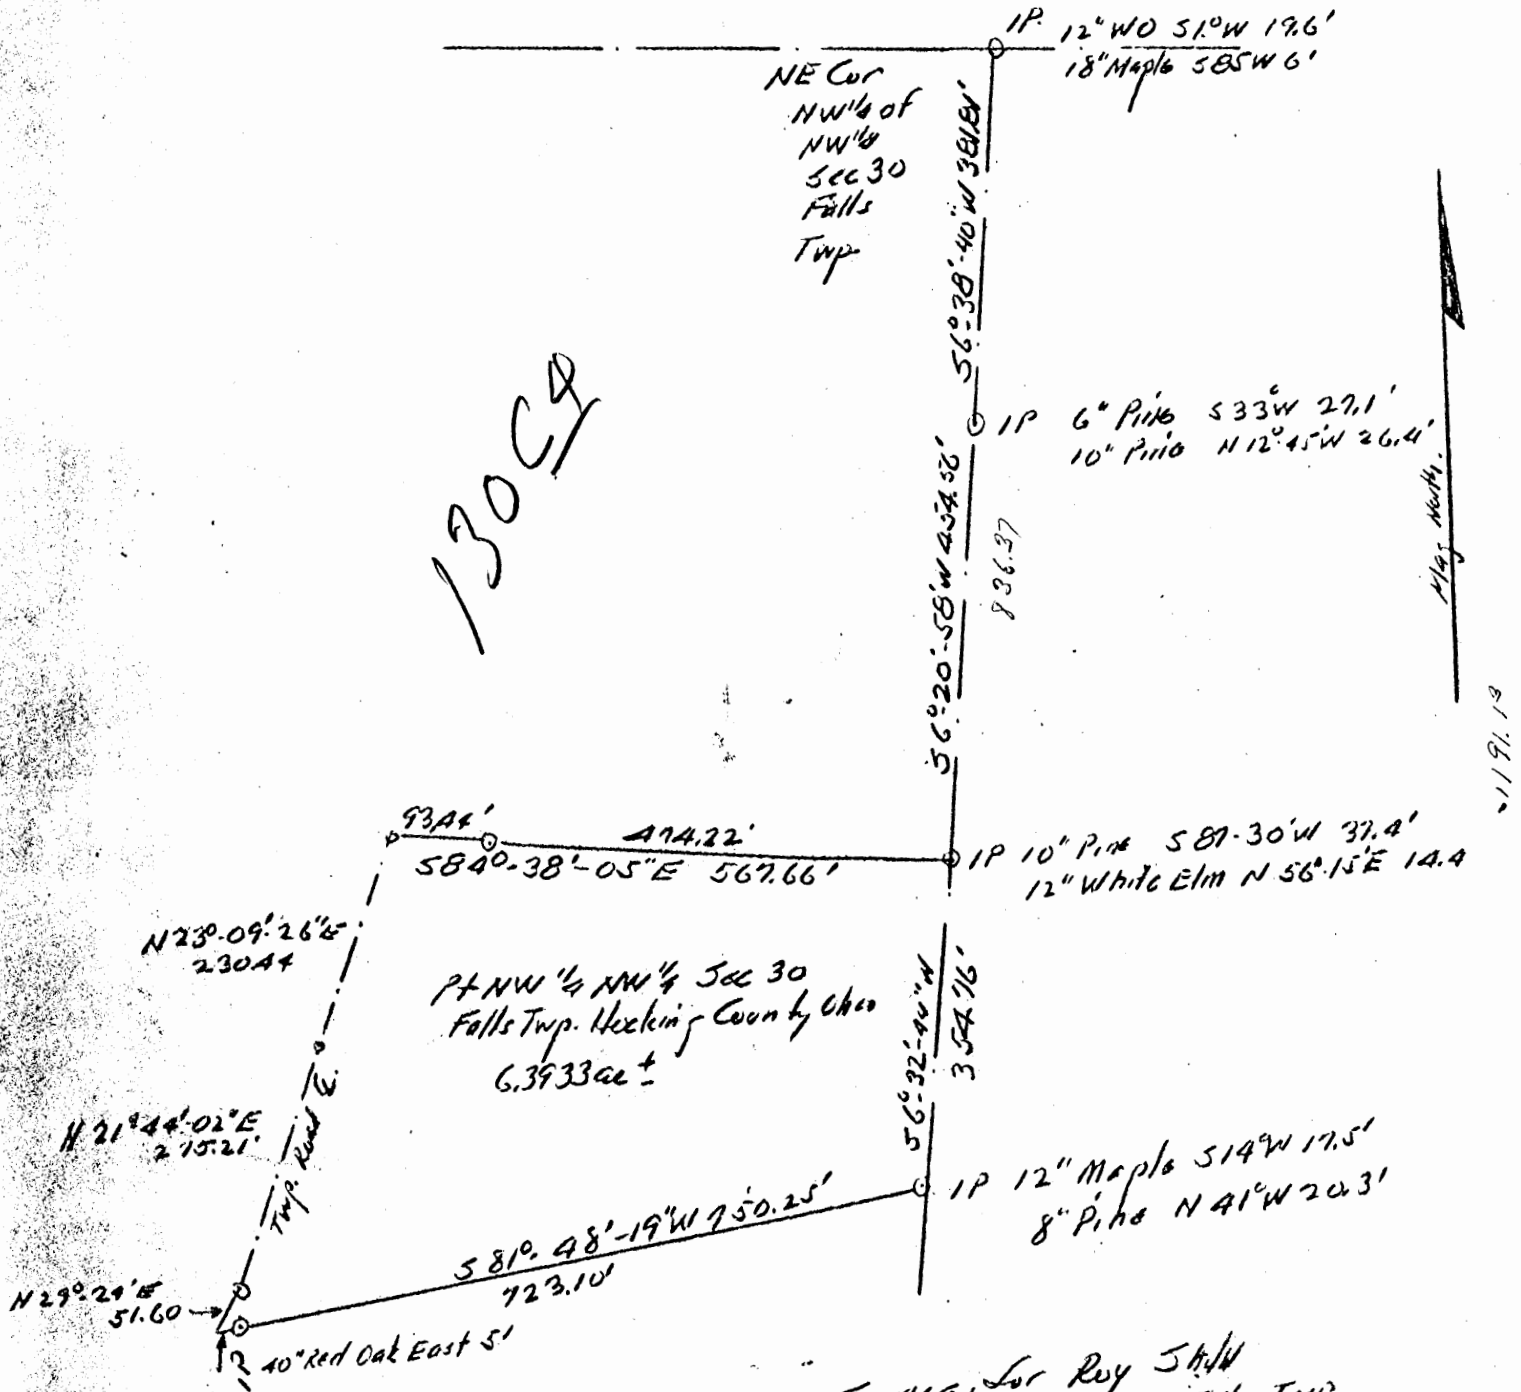 IP. 12" WO S1°W 19.6'
18" Maple S85W 6'
NE Cor
NW 1/4 of
NW 1/4
Sec 30
Falls
Twp
S6°-38'-40"W 381.81'
IP 6" Pine S33°W 27.1'
10" Pine N12°-45'W 26.4'
130 C9
Mag North.
S6°-20'-58"W 454.56'
836.37
1191.13
93.44'
474.22'
S84°-38'-05"E 567.66'
IP 10" Pine S87-30'W 37.4'
12" White Elm N56°-15'E 14.4
N23°-09'-26"E
230.44
Pt NW 1/4 NW 1/4 Sec 30
Falls Twp. Hocking County Ohio
6.3933 ac ±
S6°-32'-44"W
354.76'
N21°44'-02"E
275.21'
Twp. Road
IP 12" Maple S14°W 17.5'
8" Pine N41°W 20.3'
S81°-48'-19"W 750.25'
723.10'
N29°-24'E
51.60
IP
40" Red Oak East 5'
for Roy